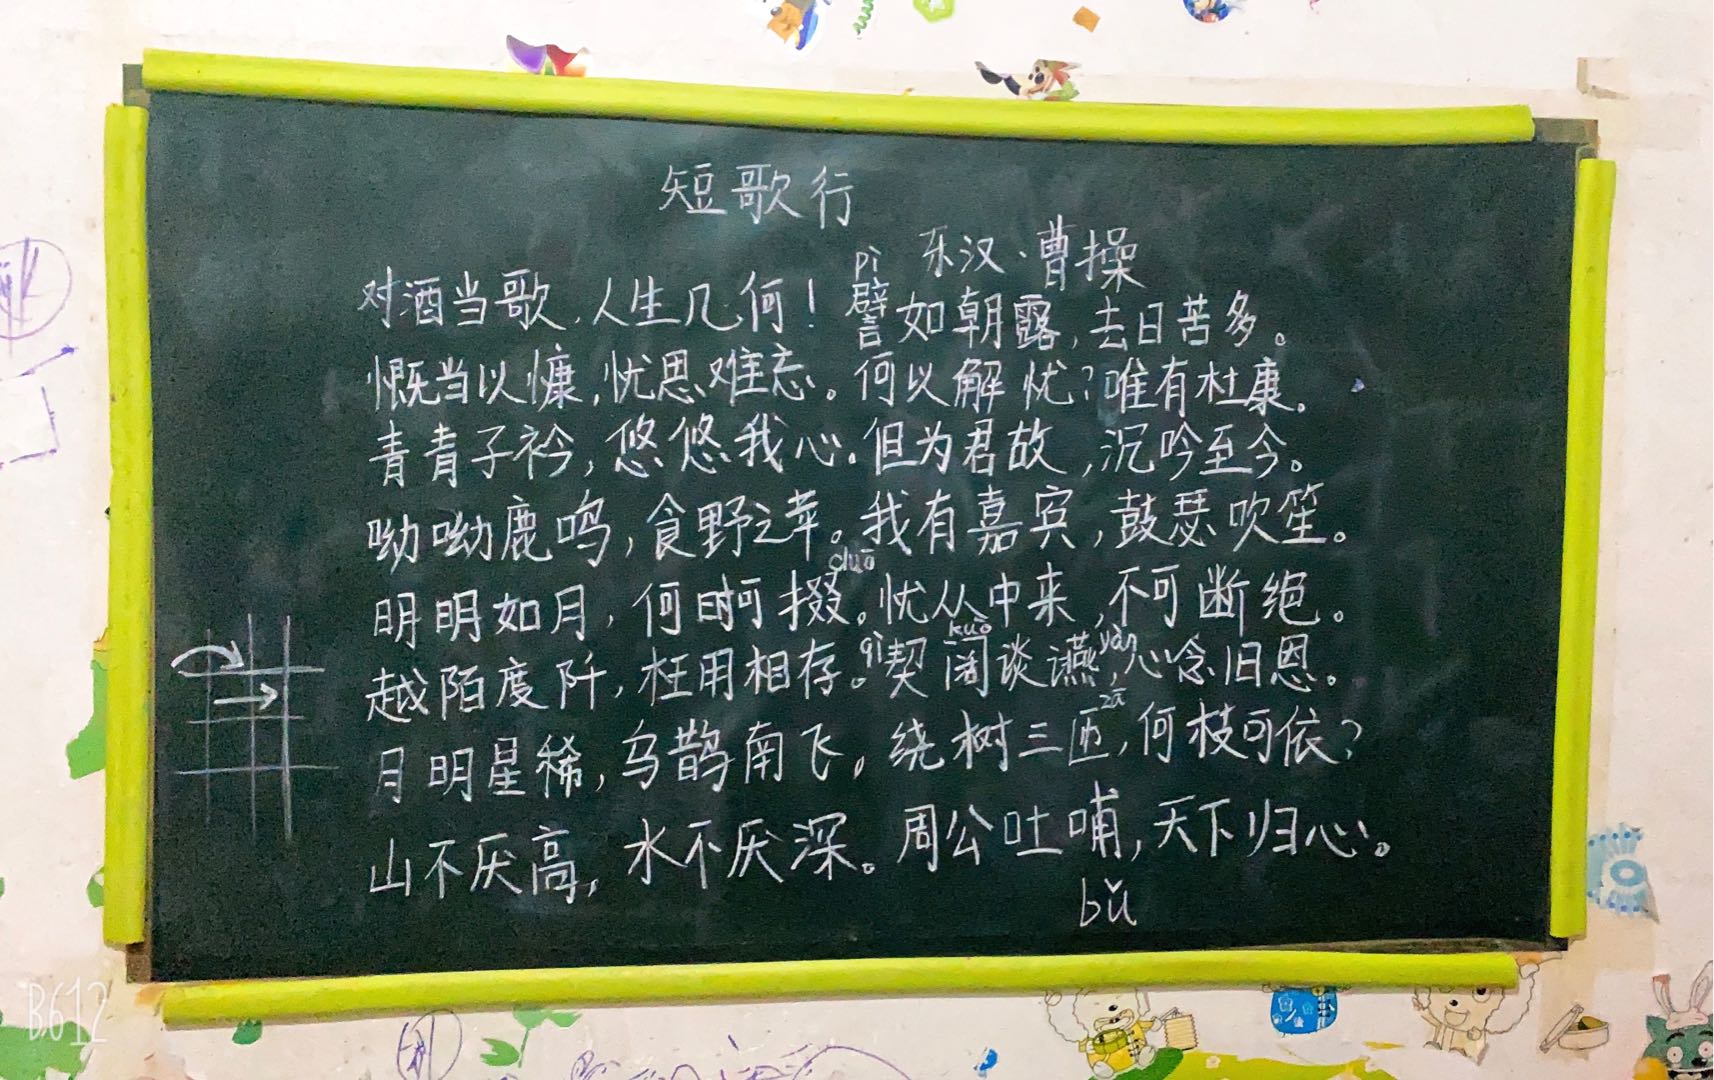 短歌行
东汉·曹操
pì
对酒当歌,人生几何!譬如朝露,去日苦多。
慨当以慷,忧思难忘。何以解忧?唯有杜康。
青青子衿,悠悠我心。但为君故,沉吟至今。
呦呦鹿鸣,食野之苹。我有嘉宾,鼓瑟吹笙。
duō
明明如月,何时可掇。忧从中来,不可断绝。
qì kuò yàn
越陌度阡,枉用相存。契阔谈讌,心念旧恩。
zā
月明星稀,乌鹊南飞。绕树三匝,何枝可依?
山不厌高,水不厌深。周公吐哺,天下归心。
bǔ
B612